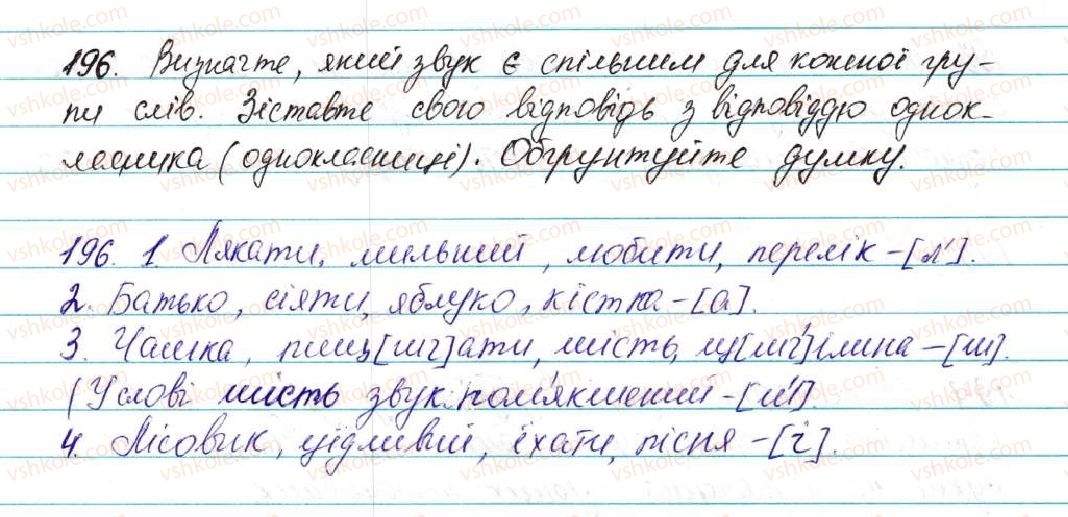 196. Визначте, який звук є спільним для кожної гру-
пи слів. Зіставте свою відповідь з відповіддю однок-
ласника (однокласниці). Обґрунтуйте думку.
196. 1. Лякати, мильний, любити, перелік - [л'].
2. Батько, сіяти, яблуко, кістка - [а].
3. Чашка, пищ[шч]ати, шість, щ[шч]ілина - [ш].
(У слові шість звук пом'якшений - [ш']).
4. Лісовик, уїдливий, їхати, пісня - [і].